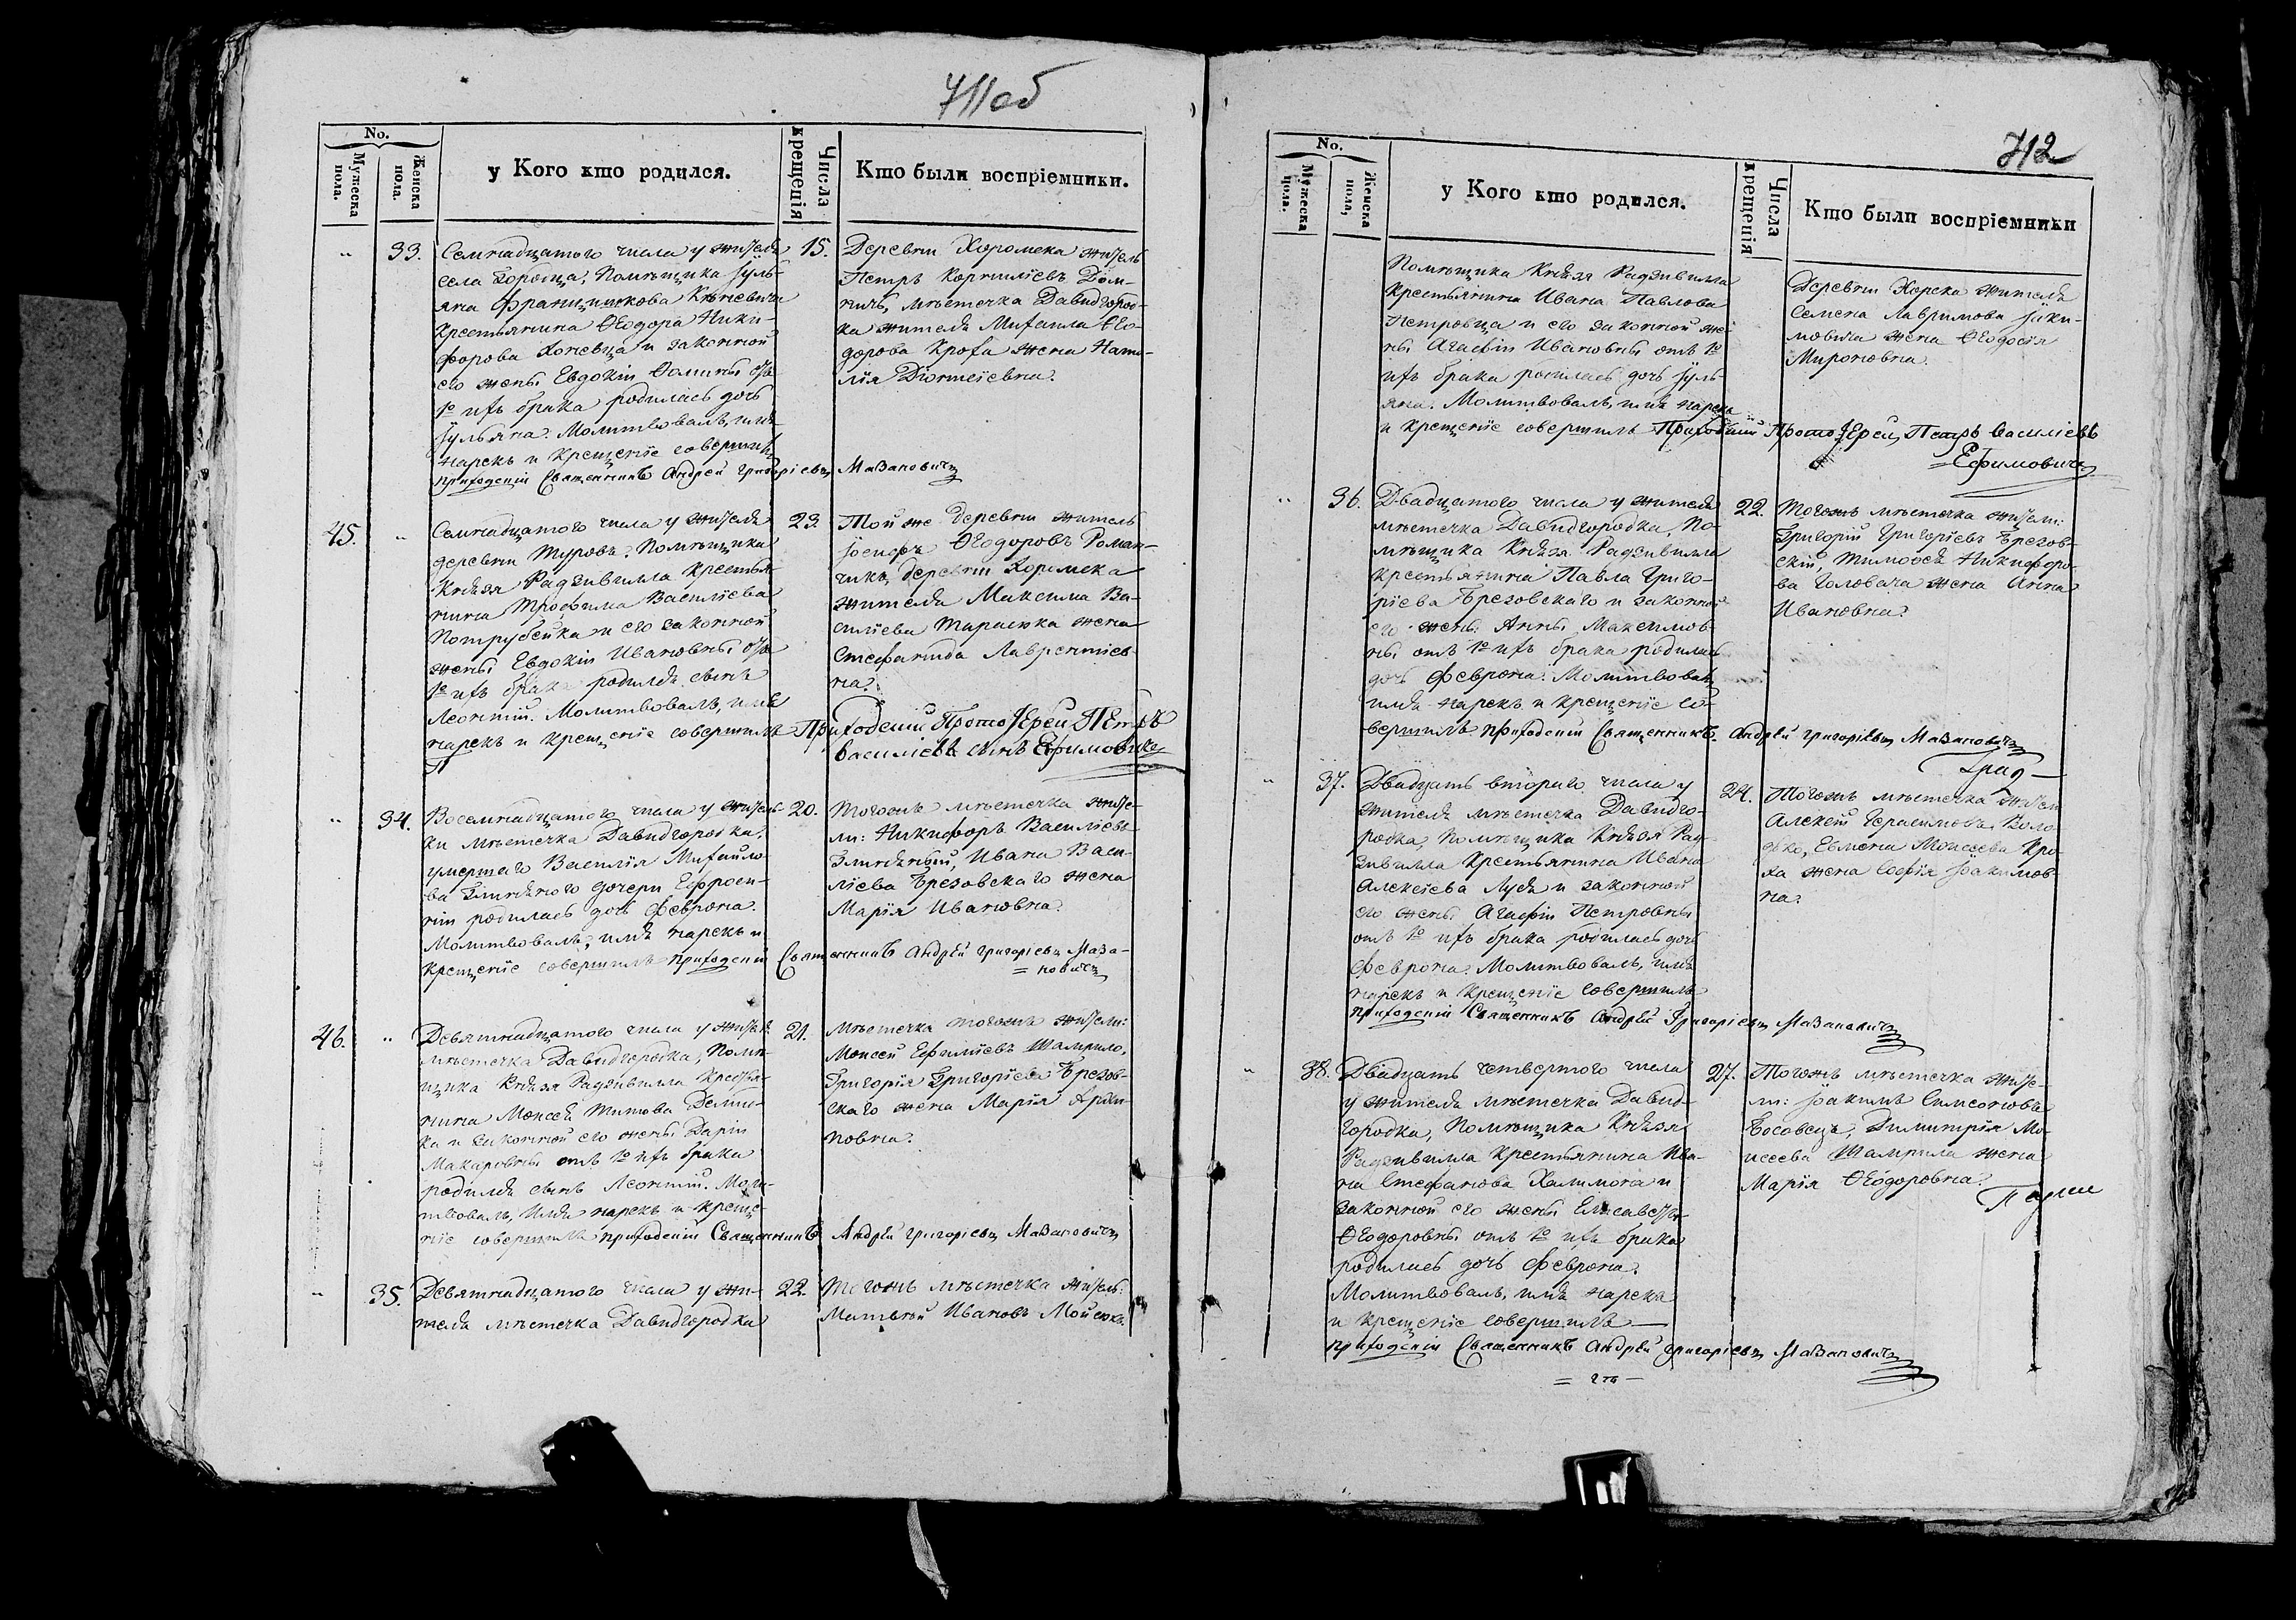 711об
No.
Мужеска пола.
Женска пола.
у Кого кто родился.
Числа крещенія
Кто были воспріемники.
33.
Семнадцатого числа у жителя
села
Помѣщика Іуль-
яна Францишкова
Крестьянина Ѳеодора Ники-
форова и законной
его жены Евдокіи Ѳомины отъ
1го ихъ брака родилась дочь
Іульяна. Молитвовалъ, имя
нарекъ и крещеніе совершилъ
приходскій Священникъ Андрей Григоріевъ Мазановичъ
15.
Деревни Хоромска житель
Петръ Корниліевъ Дом-
ничъ, мѣстечка Давидгород-
ка жителя Михаила Ѳео-
дорова Кроха жена Ната-
лія
45.
Семнадцатого числа у жителя
деревни Туровъ Помѣщика
Князя Радзивилла крестья-
нина Трофима Василіева
Потрубейка и его законной
жены Евдокіи Ивановны отъ
1го ихъ брака родился сынъ
Леонтій. Молитвовалъ, имя
нарекъ и крещеніе совершилъ Приходскій Протоіерей Петръ
Василіевъ сынъ Ефимовичъ
23.
Той же деревни житель
Іосифъ Ѳеодоровъ Роман-
чикъ, деревни Хоромска
жителя Максима Ва-
силіева Тарасюка жена
Стефанида Лаврентіев-
на.
34.
Восемнадцатого числа у житель-
ки мѣстечка Давидгородка,
умершаго Василія Михайло-
ва дочери Ефроси-
ніи родилась дочь Феврона.
Молитвовалъ, имя нарекъ и
крещеніе совершилъ приходскій Священникъ Андрей Григоріевъ Маза-
= новичъ
20.
Тогожъ мѣстечка жите-
ли: Никифоръ Василіевъ
Ивана Васи-
ліева Брезовскаго жена
Марія Ивановна.
46.
Девятнадцатого числа у жителя
мѣстечка Давидгородка, Помѣ-
щика Князя Радзивилла Крестья-
нина Моисея Титова
и законной его жены Даріи
Макаровны отъ 1го ихъ брака
родился сынъ Леонтій. Моли-
твовалъ, имя нарекъ и креще-
ніе совершилъ приходскій Священникъ Андрей Григоріевъ Мазановичъ
21.
Мѣстечка тогожъ жители:
Моисей Шамрило,
Григорія Григоріева Брезов-
скаго жена Марія Архи-
повна.
35.
Девятнадцатого числа у жи-
теля мѣстечка Давидгородка
22.
Тогожъ мѣстечка житель:
Матвѣй Ивановъ
712
No.
Мужеска пола.
Женска пола,
у Кого кто родился.
Числа крещенія
Кто были воспріемники
Помѣщика Князя Радзивилла
крестьянина Ивана Павлова
Петровца и его законной же-
ны Агафіи Ивановны отъ 1го
ихъ брака родилась дочь Іуль-
яна. Молитвовалъ, имя нарекъ
и крещеніе совершилъ Приходскій Протоіерей Петръ Василіевъ
=Ефимовичъ
Деревни Хорска жителя
Семена Яки-
мовича жена Ѳеодосія
Мироновна.
36.
Двадцатого числа у жителя
мѣстечка Давидгородка, По-
мѣщика Князя Радзивилла
крестьянина Павла Григо-
ріева Брезовскаго и законной
его жены Анны Максимов-
ны отъ 1го ихъ брака родилась
дочь Феврона. Молитвовалъ,
имя нарекъ и крещеніе со-
вершилъ приходскій Священникъ Андрей Григоріевъ Мазановичъ
22.
Тогожъ мѣстечка жители:
Григорій Григоріевъ Брезов-
скій, Тимоѳея Никифоро-
ва Головача жена Анна
Ивановна.
37.
Двадцать втораго числа у
жителя мѣстечка Давидго-
родка, Помѣщика Князя Рад-
зивилла Крестьянина Ивана
Алексіева Луся и законной
его жены Агафіи Петровны
отъ 1го ихъ брака родилась дочь
Феврона. Молитвовалъ, имя
нарекъ и крещеніе совершилъ
приходскій Священникъ Андрей Григоріевъ Мазановичъ
24.
Тогожъ мѣстечка жители
Алексій Герасимовъ Воло-
Моисеева Кро-
ха жена Софія Іоакимов-
на.
38.
Двадцать четвертого числа
у жителя мѣстечка Давид-
городка, Помѣщика Князя
Радзивилла Крестьянина Ива-
на Стефанова Халимона и
законной его жены Елисаветы
Ѳеодоровны отъ 1го ихъ брака
родилась дочь Феврона.
Молитвовалъ, имя нарекъ
и крещеніе совершилъ
приходскій Священникъ Андрей Григоріевъ Мазановичъ
27.
Тогожъ мѣстечка жите-
ли: Іоакимъ Симеоновъ
Босовецъ, Димитрія Мо-
исеева Шамрила жена
Марія Ѳеодоровна.